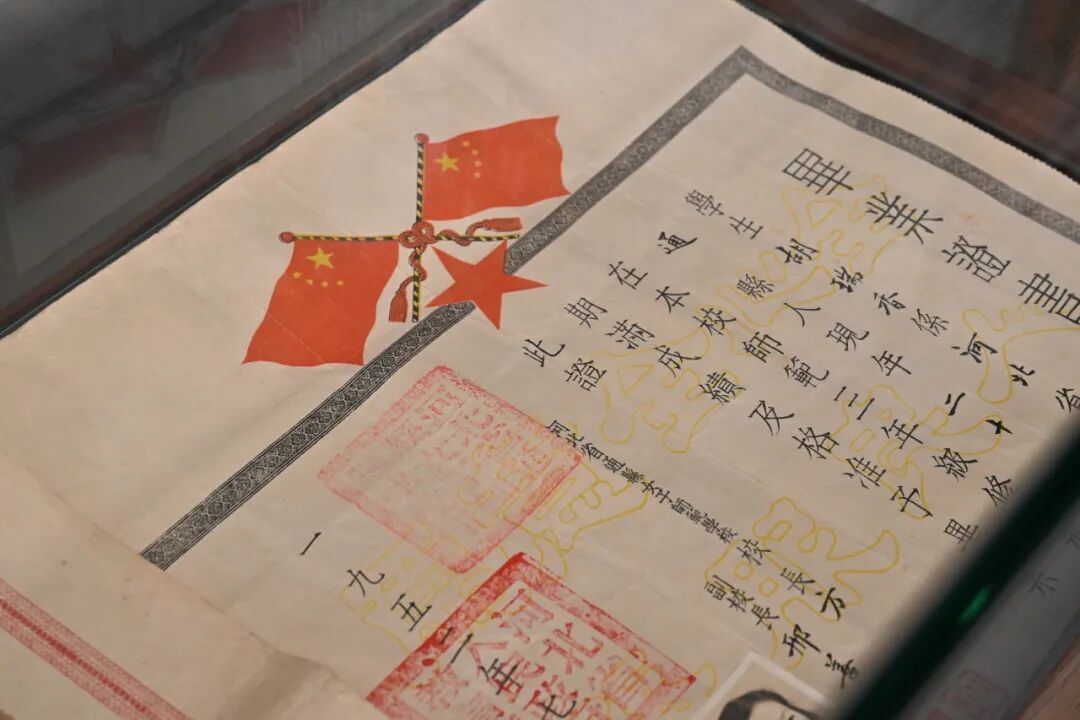 畢業證書
學生胡瑞香係河北省
通縣人現年二十
在本校師範三年級修
期滿成績及格准予畢
此證
河北省通縣女子師範學校
校長方
副校長邢
一九五二年七
河北省